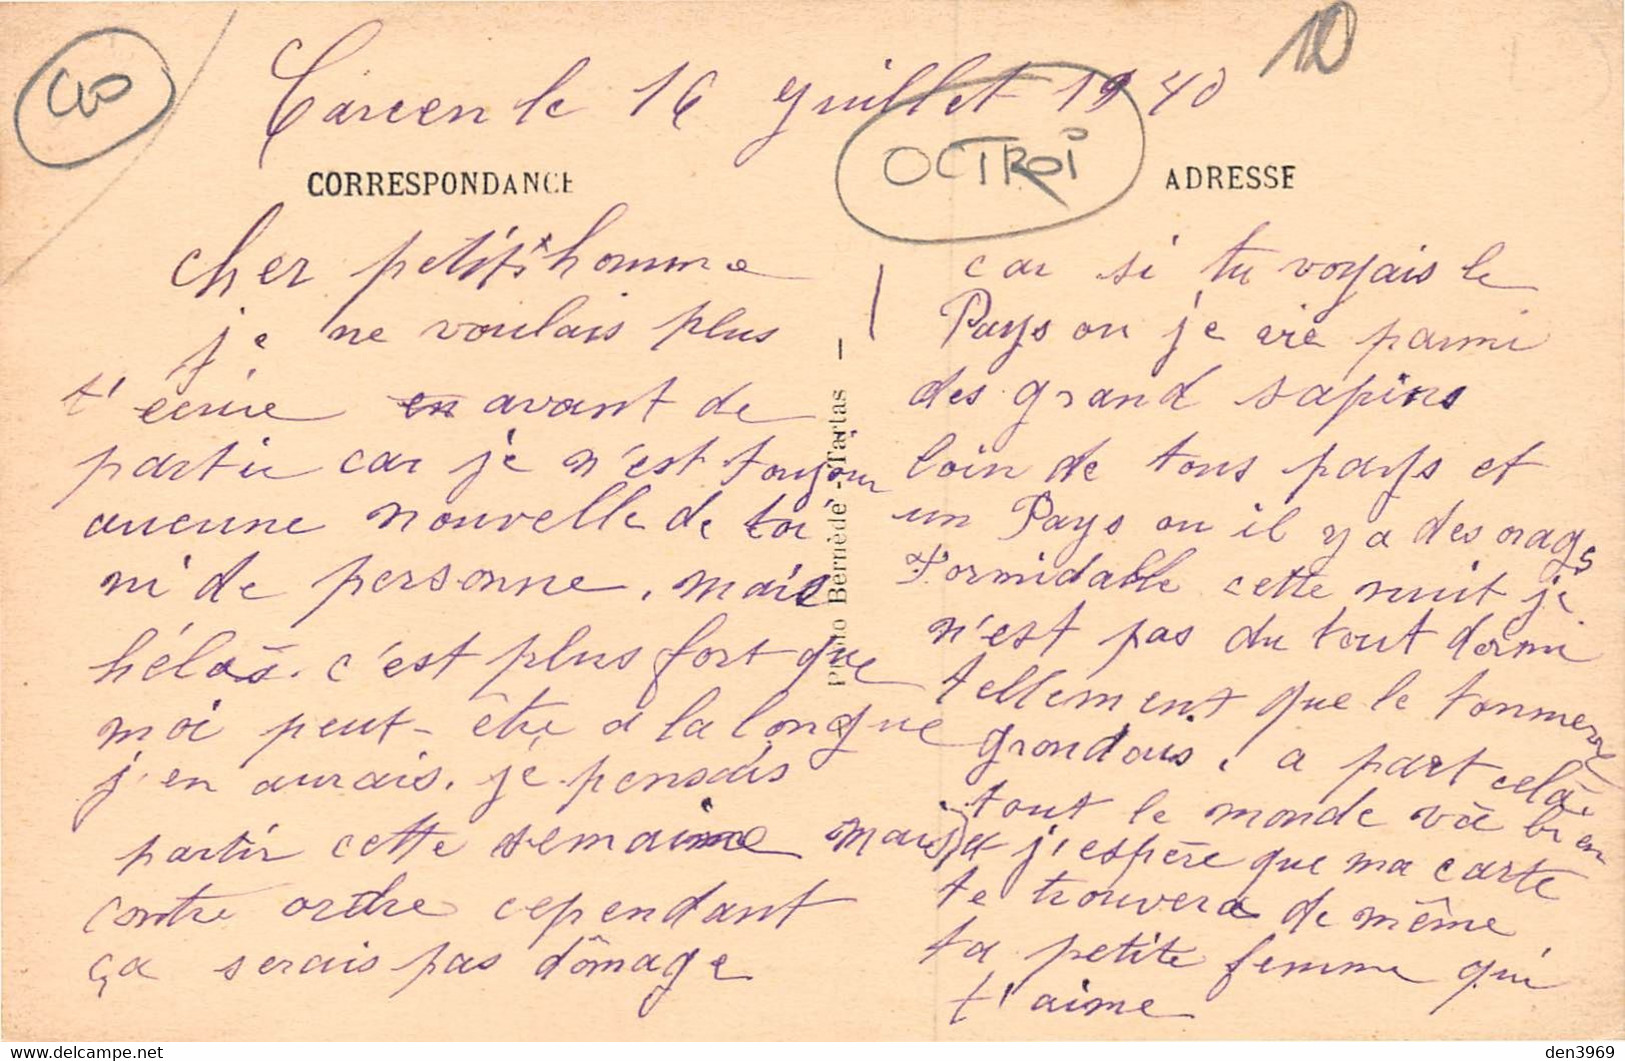 40
10
Carcen le 16 Juillet 1940
OCTROI
CORRESPONDANCE
ADRESSE
Cher petit homme
je ne voulais plus
t'écrire avant de
partir car je n'est toujour
aucune nouvelle de toi
ni de personne, mais
hélas. c'est plus fort que
moi peut-être a la longue
j'en aurais. je pensais
partir cette semaine mais
contre ordre cependant
ça serais pas dômage
Photo Bernède - Tartas
car si tu voyais le
Pays ou je vie parmi
des grand sapins
loin de tous pays et
un Pays ou il y a des orages
Formidable cette nuit je
n'est pas du tout dormi
tellement que le tonnere
grondais, a part celà
tout le monde và bien
et j'espère que ma carte
te trouvera de même
ta petite femme qui
t'aime
den3969